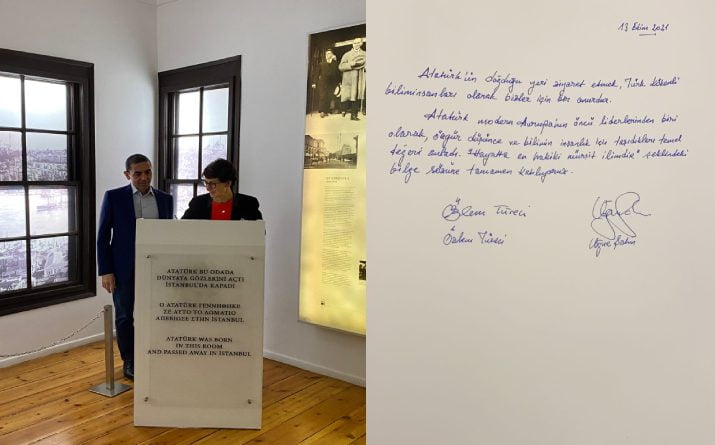 ATATÜRK BU ODADA
DÜNYAYA GÖZLERİNİ AÇTI
İSTANBUL'DA KAPADI
Ο ATATURK ΓΕΝΝΗΘΗΚΕ
ΣΕ ΑΥΤΟ ΤΟ ΔΩΜΑΤΙΟ
ΑΠΕΒΙΩΣΕ ΣΤΗΝ ISTANBUL
ATATÜRK WAS BORN
IN THIS ROOM
AND PASSED AWAY IN İSTANBUL
13 Ekim 2021
Atatürk'ün doğduğu yeri ziyaret etmek, Türk kökenli
biliminsanları olarak bizler için bir onurdur.
Atatürk modern Avrupa'nın öncü liderlerinden biri
olarak, özgür düşünce ve bilimin insanlık için taşıdıkları temel
değeri anladı. "Hayatta en hakiki mürşit ilimdir" şeklindeki
bilge sözüne tamamen katılıyoruz.
Özlem Türeci
Özlem Türeci Uğur Şahin